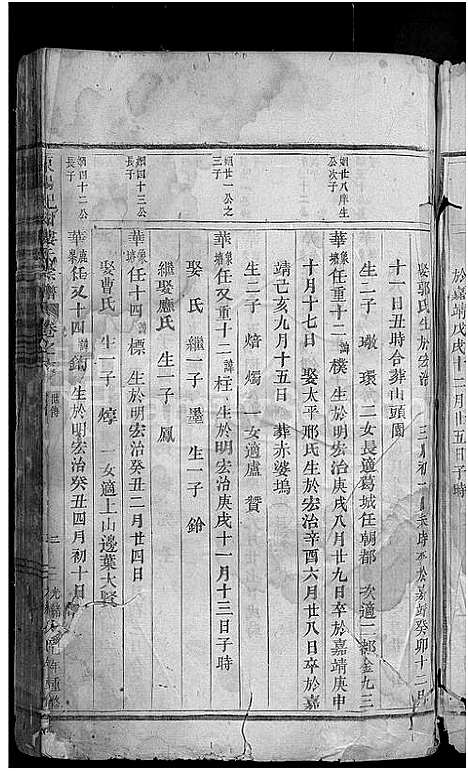 於嘉靖戊戌十二月廿五日子時
娶郭氏生於宏治 三月初一日 時卒於嘉靖癸卯十二月
十一日丑時合葬山頭園
生二子 墩 環 二女長適葛城任朝都 次適二都金九三
烟廿八庠生公次子
華 任重十二 諱 樸 生於明宏治庚戌八月廿九日卒於嘉靖庚申
十月十七日 娶太平邢氏生於宏治辛酉六月廿八日卒於嘉
靖己亥九月十五日 葬赤婆塢
生二子 焙 燭 一女適盧贊
烟廿一公之三子
華 任又重十二 諱 柱 生於明宏治庚戌十一月十三日子時
娶 氏 繼一子 墨 生一子 鈴
繼娶應氏 生一子 鳳
烟四十三公長子
華 任十四 諱 標 生於明宏治癸丑二月廿四日
娶曹氏 生一子 焞 一女適上山邊葉大賢
烟四十二公長子
華 任又十四 諱 生於明宏治癸丑四月初十日
東陽 宗譜 卷之 世傳 二 光緒 年重修